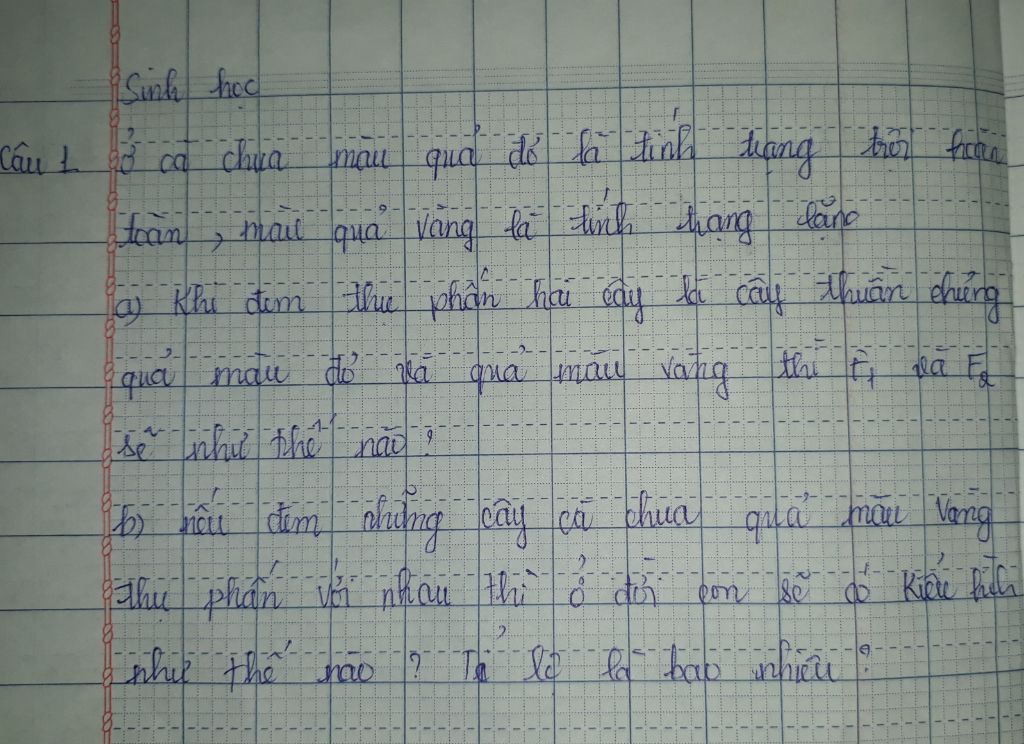 Sinh học
Câu 1 Ở cà chua màu quả đỏ là tính trạng trội hoàn
toàn, màu quả vàng là tính trạng lặn
a) Khi đem thụ phấn hai cây là cây thuần chủng
quả màu đỏ và quả màu vàng thì F1 và F2
sẽ như thế nào?
b) nếu đem những cây cà chua quả màu vàng
thụ phấn với nhau thì ở đời con sẽ có kiểu hình
như thế nào? Tỉ lệ là bao nhiêu?